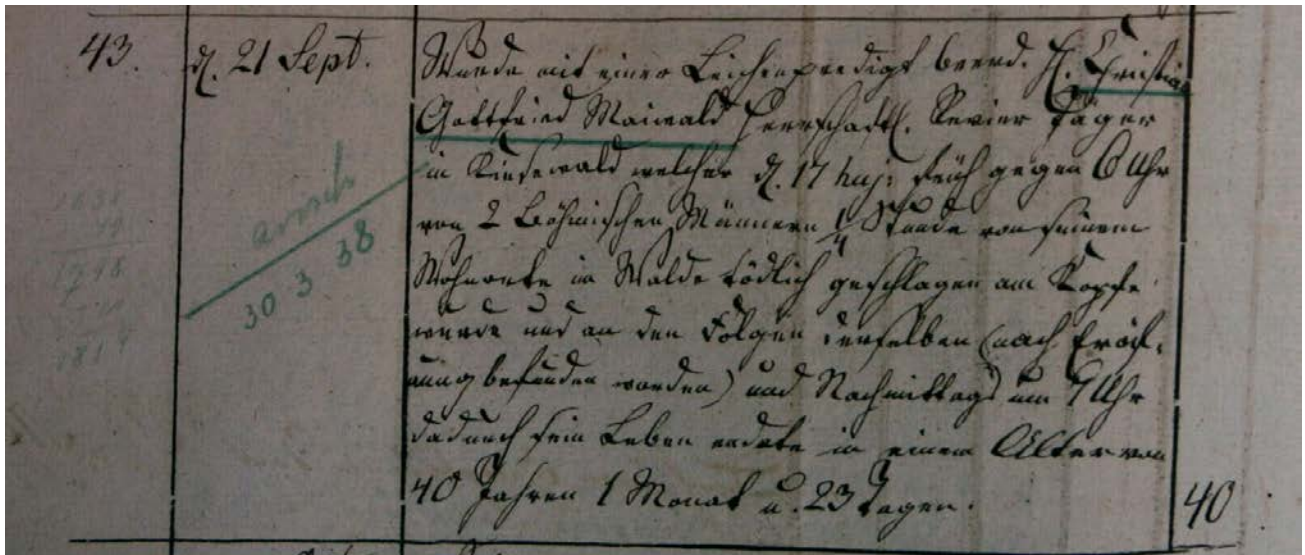 43.
d. 21 Sept.
Wurde mit einer Leichenpredigt beerd. H. Christian
Gottfried Maiwald herrschaftl. Revier Jäger
in Kiesewald welcher d. 17 huj: früh gegen 6 Uhr
von 2 Böhmischen Männern 1/4 Stunde von seinem
Wohnorte im Walde tödlich geschlagen am Kopfe
wurde und an den Folgen derselben (nach Eröf-
nung befunden worden) und Nachmittags um 7 Uhr
dadurch sein Leben endete in einem Alter von
40 Jahren 1 Monat u. 23 Tagen.
40
arisch
30 3 38